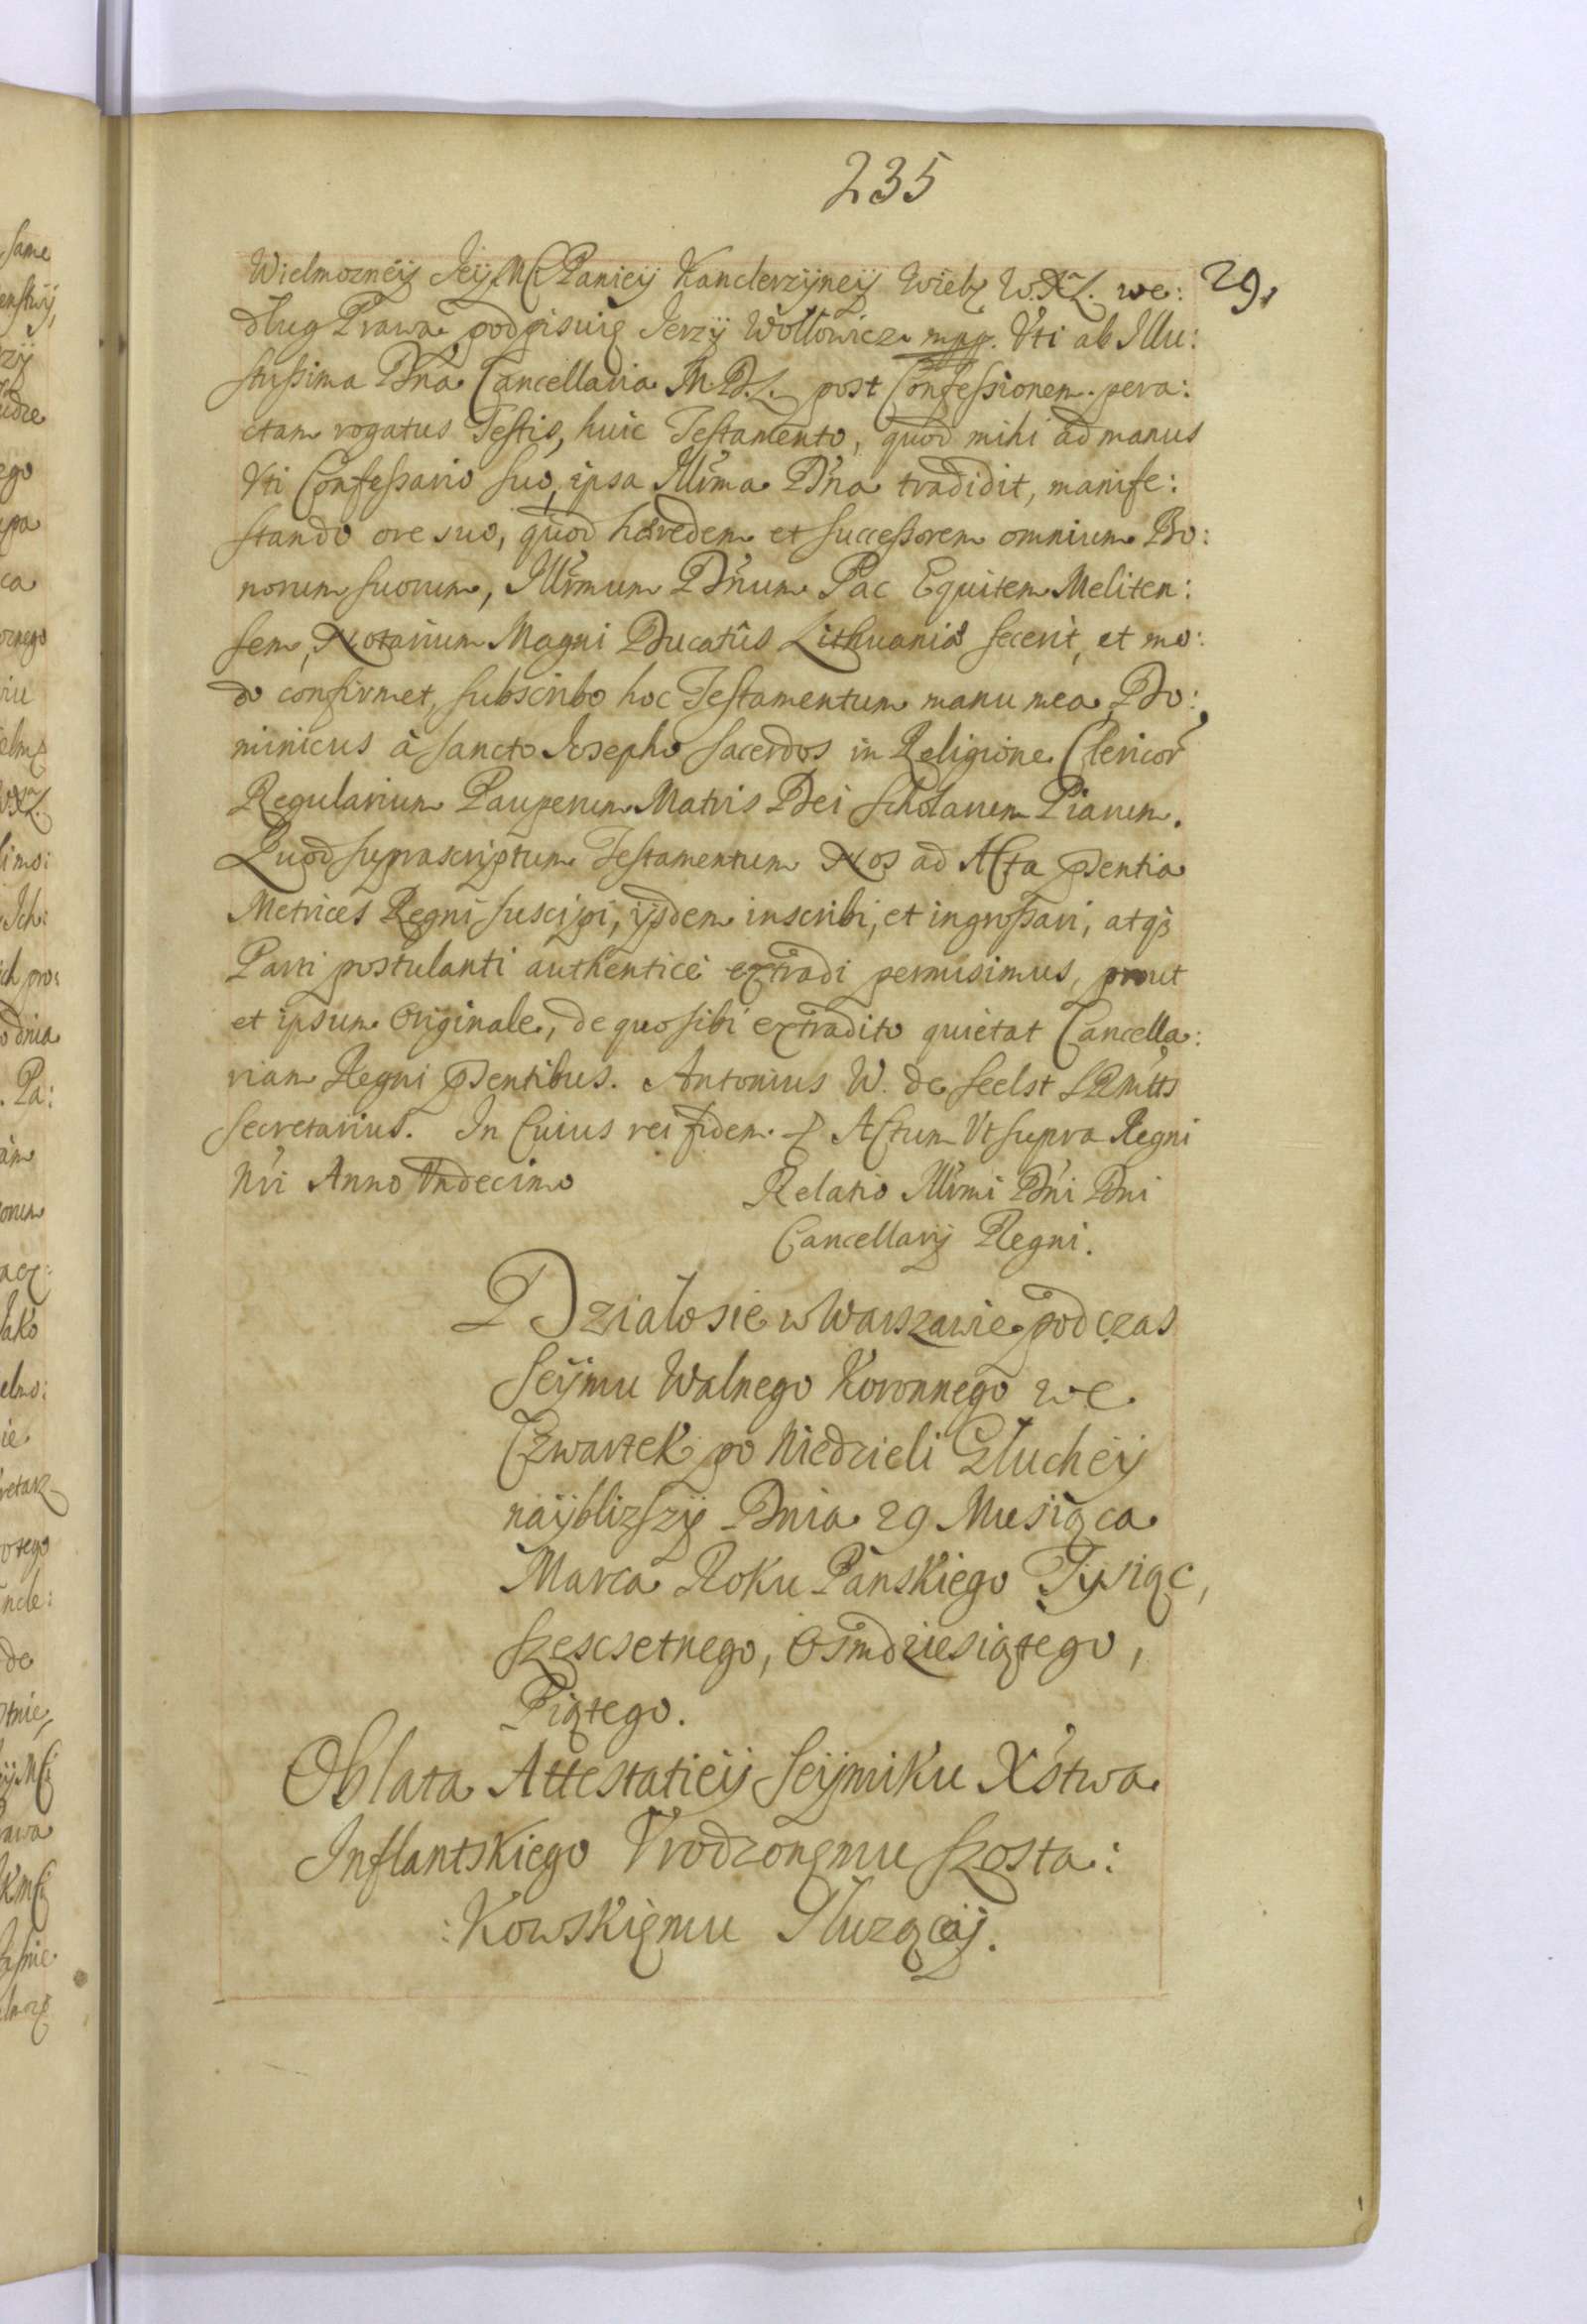 235
29.
Wielmozneÿ Jeÿ Mci Panieÿ Kanclerzÿneÿ Wielg W.X.L. we:
dług Prawa podpisuię Jerzÿ Wołłowicz mpp. Vti ab Illu:
strissima Dna Cancellaria M.D.L. post Confessionem pera:
ctam rogatus Testis, huic Testamento, quod mihi ad manus
Vti Confessario suo, ipsa Illrma Dna tradidit, manife:
stando ore suo, quod hæredem et successorem omnium Bo:
norum suorum, Illrmum Dnum Pac Equitem Meliten:
sem, Notarium Magni Ducatûs Lithuaniæ fecerit, et mo:
do confirmet, subscribo hoc Testamentum manu mea, Do:
minicus à Sancto Josepho Sacerdos in Religione Clericor
Regularium Pauperum Matris Dei Scholarum Piarum.
Quod suprascriptum Testamentum Nos ad Acta pñtia
Metrices Regni suscipi, ijsdem inscribi, et ingrossari, atq3
Parti postulanti authenticè extradi permisimus, prout
et ipsum Originale, de quo sibi extradito quietat Cancella:
riam Regni pñtibus. Antonius W. de Seelst SRMtts
Secretarius. In Cuius rei fidem Actum Vt supra Regni
Nri Anno Vndecimo
Relatio Illrmi Dni Dni
Cancellarij Regni.
Działo sie w Warszawie pod czas
Seÿmu Walnego Koronnego we
Czwartek po Niedzieli Głucheÿ
naÿblizszÿ Dnia 29 Miesiąca
Marca Roku Panskiego Tysiąc,
szescsetnego, Osmdziesiątego,
Piątego.
Oblata Attestatieÿ Seÿmiku Xstwa
Inflantskiego Vrodzonęmu Szosta:
:Kowskięmu Służącaÿ.